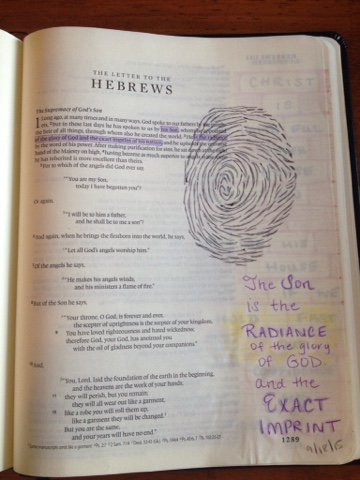 THE LETTER TO THE
HEBREWS
The Supremacy of God's Son
1 Long ago, at many times and in many ways, God spoke to our fathers by the
but in these last days he has spoken to us by his Son, whom he appointed
the heir of all things, through whom also he created the world. He is the radiance
of the glory of God and the exact imprint of his nature, and he upholds the universe
by the word of his power. After making purification for sins, he sat down at the right
hand of the Majesty on high, having become as much superior to angels as the name
he has inherited is more excellent than theirs.
For to which of the angels did God ever say,
"You are my Son,
today I have begotten you"?
Or again,
"I will be to him a father,
and he shall be to me a son"?
And again, when he brings the firstborn into the world, he says,
"Let all God's angels worship him."
Of the angels he says,
"He makes his angels winds,
and his ministers a flame of fire."
But of the Son he says,
"Your throne, O God, is forever and ever,
the scepter of uprightness is the scepter of your kingdom.
You have loved righteousness and hated wickedness;
therefore God, your God, has anointed you
with the oil of gladness beyond your companions."
And,
"You, Lord, laid the foundation of the earth in the beginning,
and the heavens are the work of your hands;
they will perish, but you remain;
they will all wear out like a garment,
like a robe you will roll them up,
like a garment they will be changed.
But you are the same,
and your years will have no end."
1289
The Son
is the
RADIANCE
of the glory
of GOD
and the
EXACT
IMPRINT
9/18/15
CHRIST
IS
HIS
HOUSE